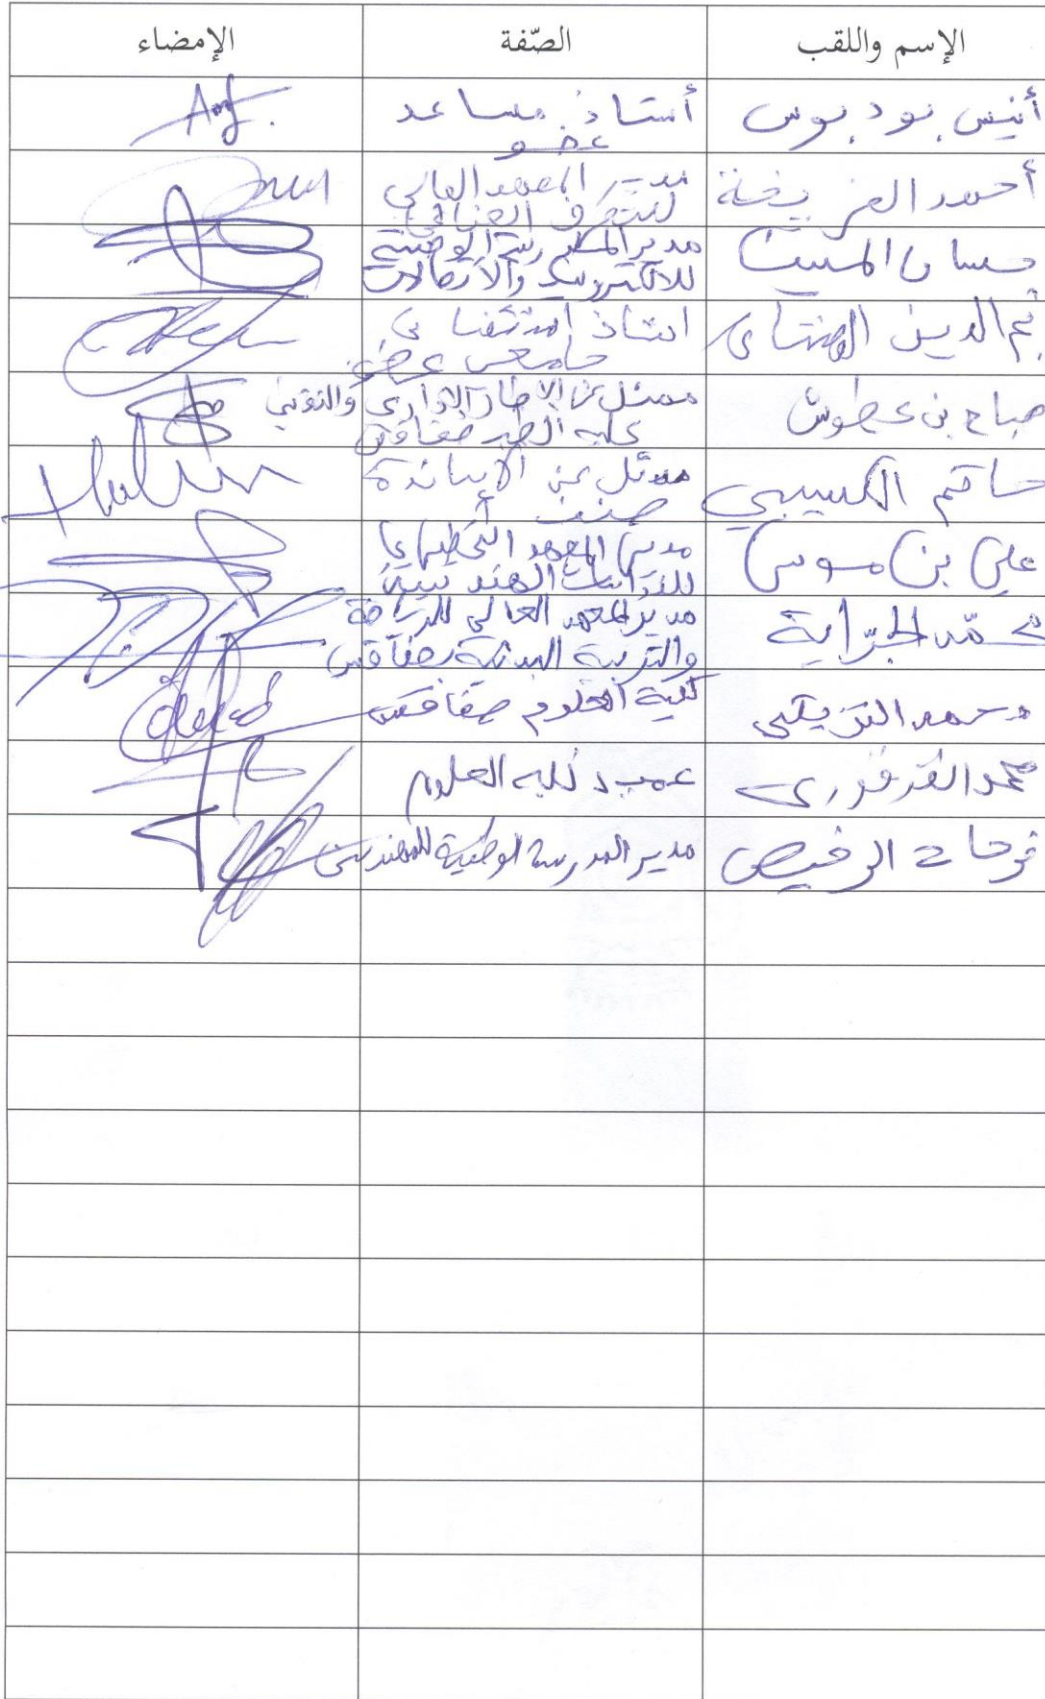 الإسم واللقب الصّفة الإمضاء
أنيس بودبوس أستاذ مساعد
عضو
أحمد الغريضة مدير المعهد العالي
حسان المسيت مدير المدرسة الوطنية
للالكترونيك والاتصالات
نجم الدين الهنتاتي استاذ استشفائي
جامعي عضو
صباح بن عطوش ممثل عن الإطار الإداري والتقني
كلية الطب صفاقس
حاتم الكسيبي ممثل عن الأساتذة
صنف أ
علي بن موسى مدير المعهد التحضيري
للدراسات الهندسية
محمّد الجرّاية مدير المعهد العالي للرياضة
والتربية البدنية بصفاقس
محمد التريكي كلية العلوم صفاقس
محمد القرقوري عميد كلية العلوم
فرحات الرفيص مدير المدرسة الوطنية للمهندسين